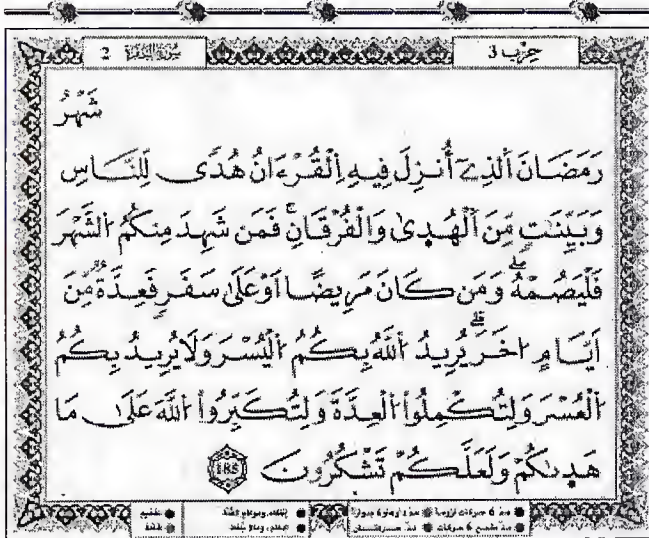 سُورَةُ الْبَقَرَةِ 2 حِزْب 3
شَهْرُ
رَمَضَانَ اَ۬لذِےٓ أُنزِلَ فِيهِ اِ۬لْقُرْءَانُ هُدٗى لِّلنَّاسِ
وَبَيِّنَٰتٖ مِّنَ اَ۬لْهُد۪يٰ وَالْفُرْقَانِۖ فَمَن شَهِدَ مِنكُمُ اُ۬لشَّهْرَ
فَلْيَصُمْهُۖ وَمَن كَانَ مَرِيضاً اَوْ عَلَىٰ سَفَرٖ فَعِدَّةٞ مِّنَ
اَيَّامٍ اُخَرَۖ يُرِيدُ اُ۬للَّهُ بِكُمُ اُ۬لْيُسْرَ وَلَا يُرِيدُ بِكُمُ
اُ۬لْعُسْرَ وَلِتُكْمِلُواْ اُ۬لْعِدَّةَ وَلِتُكَبِّرُواْ اُ۬للَّهَ عَلَىٰ مَا
هَد۪ىٰكُمْ وَلَعَلَّكُمْ تَشْكُرُونَ 185